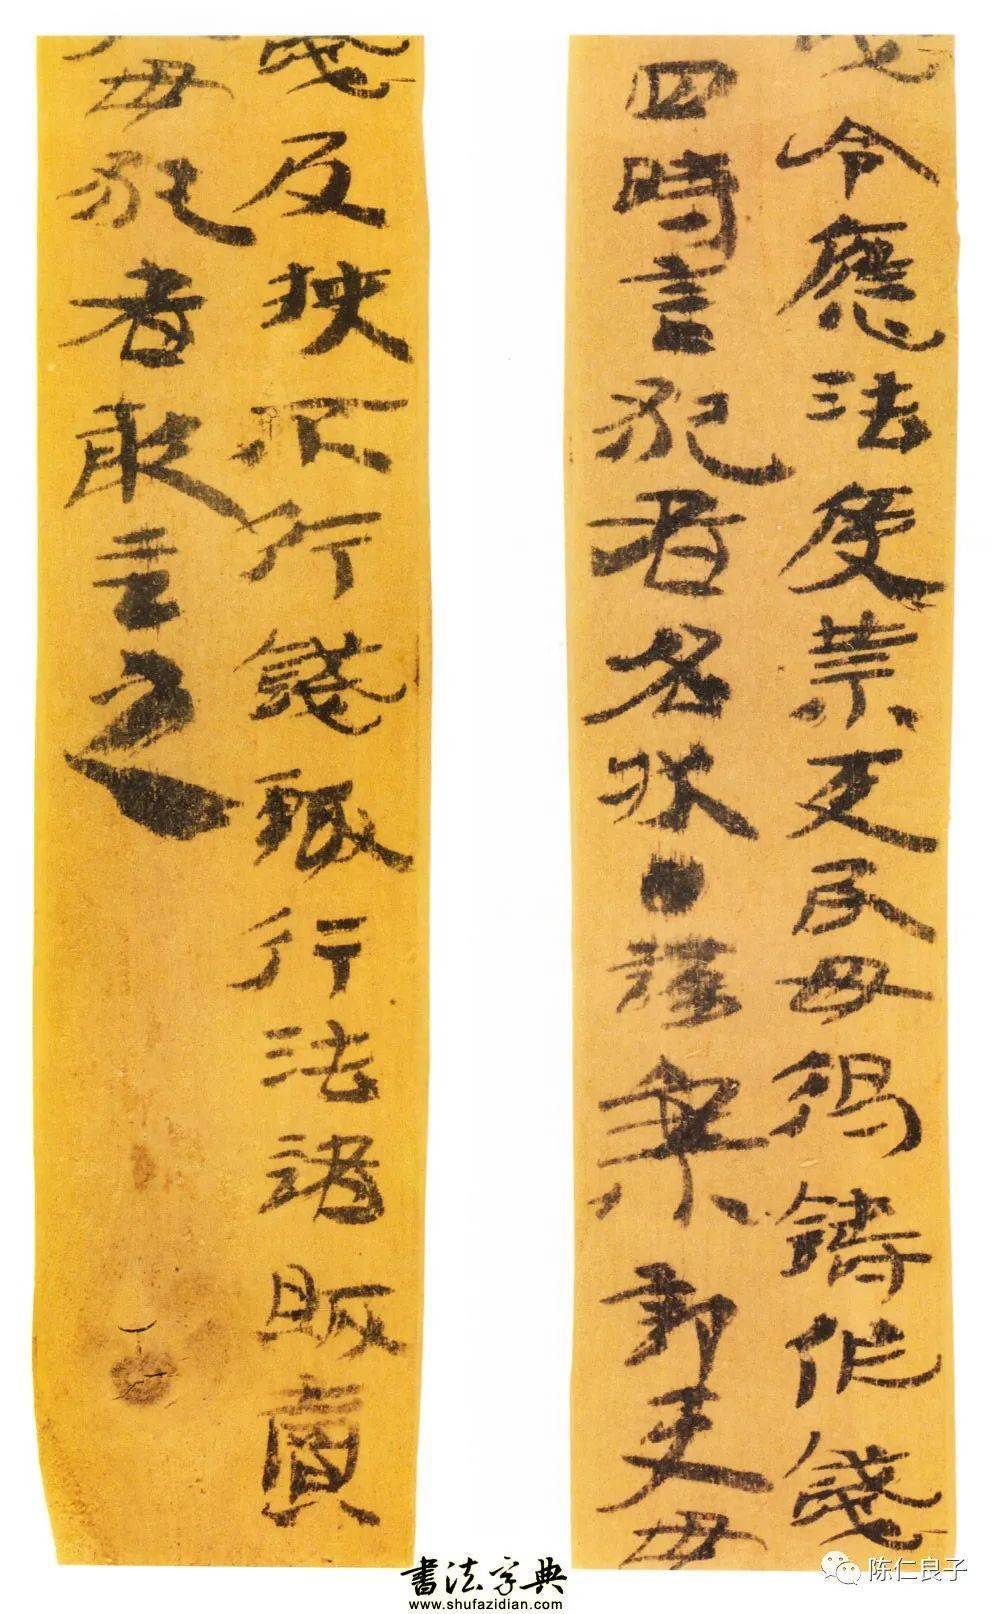 錢令應法度禁吏民毋得鑄作錢
四時言犯者名狀●謹案部吏毋
錢反挾不行錢輒行法諸販賣
毋犯者敢言之
書法字典
www.shufazidian.com
陈仁良子